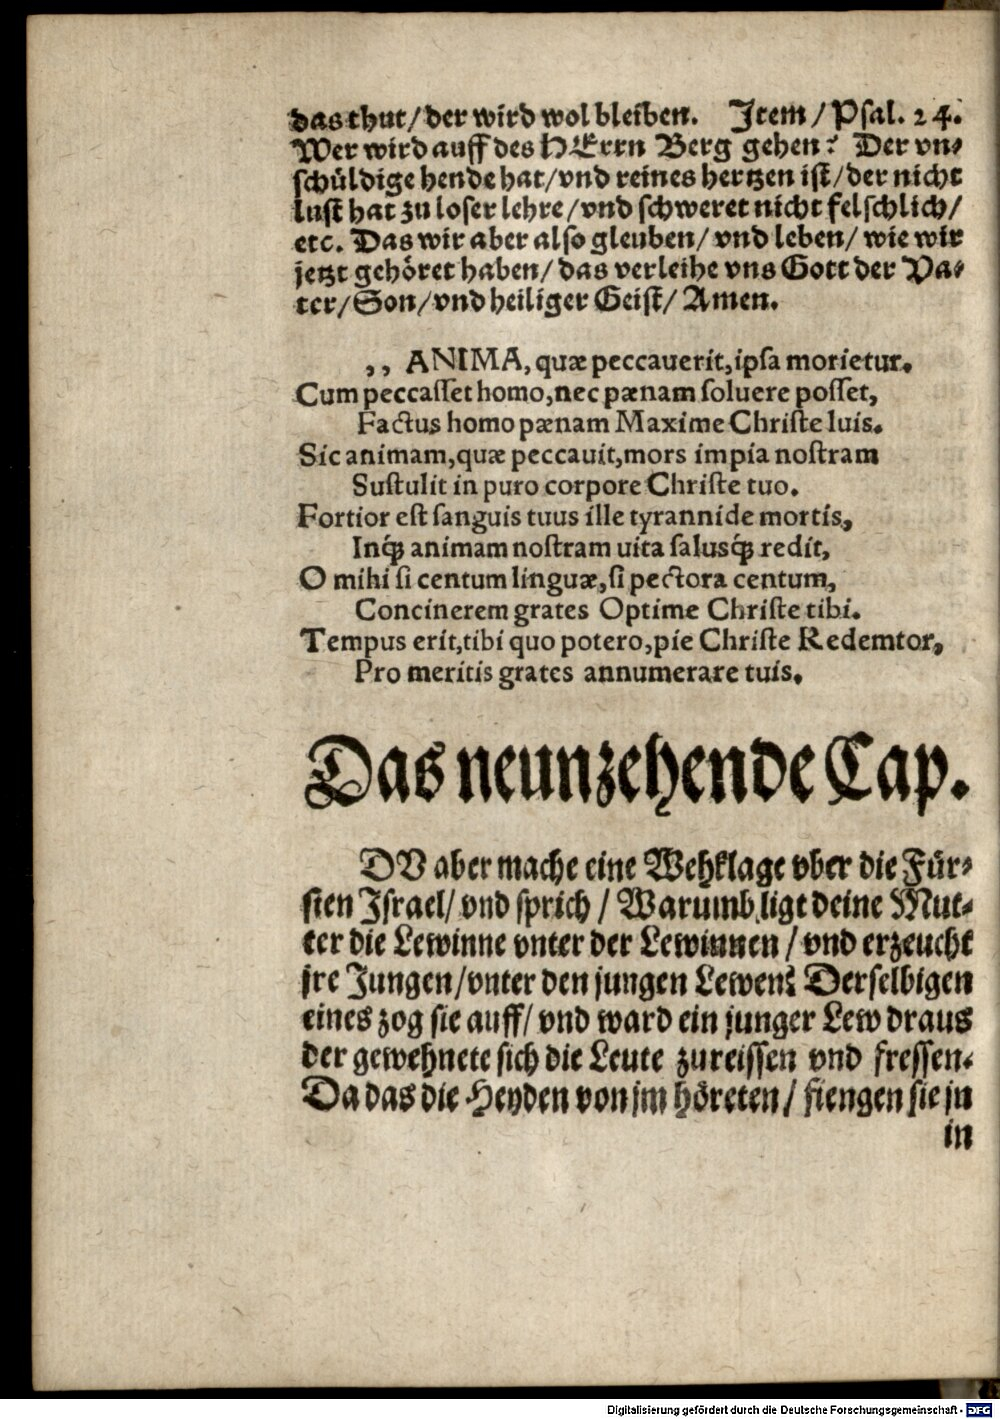 das thut/ der wird wol bleiben. Item / Psal. 24.
Wer wird auff des HErrn Berg gehen? Der vn-
schüldige hende hat/ vnd reines hertzen ist/ der nicht
lust hat zu loser lehre/ vnd schweret nicht felschlich/
etc. Das wir aber also gleuben/ vnd leben/ wie wir
jetzt gehöret haben/ das verleihe vns Gott der Va-
ter/ Son/ vnd heiliger Geist/ Amen.
,, ANIMA, quæ peccauerit, ipsa morietur.
Cum peccasset homo, nec pænam soluere posset,
Factus homo pænam Maxime Christe luis.
Sic animam, quæ peccauit, mors impia nostram
Sustulit in puro corpore Christe tuo.
Fortior est sanguis tuus ille tyrannide mortis,
Inq́ꝫ animam nostram uita salusq́ꝫ redit,
O mihi si centum linguæ, si pectora centum,
Concinerem grates Optime Christe tibi.
Tempus erit, tibi quo potero, pie Christe Redemtor,
Pro meritis grates annumerare tuis.
Das neunzehende Cap.
DV aber mache eine Wehklage vber die Für-
sten Israel/ vnd sprich / Warumb ligt deine Mut-
ter die Lewinne vnter der Lewinnen / vnd erzeucht
jre Jungen/ vnter den jungen Lewen? Derselbigen
eines zog sie auff/ vnd ward ein junger Lew draus
der gewehnete sich die Leute zureissen vnd fressen.
Da das die Heyden von jm höreten / fiengen sie jn
in
Digitalisierung gefördert durch die Deutsche Forschungsgemeinschaft - DFG